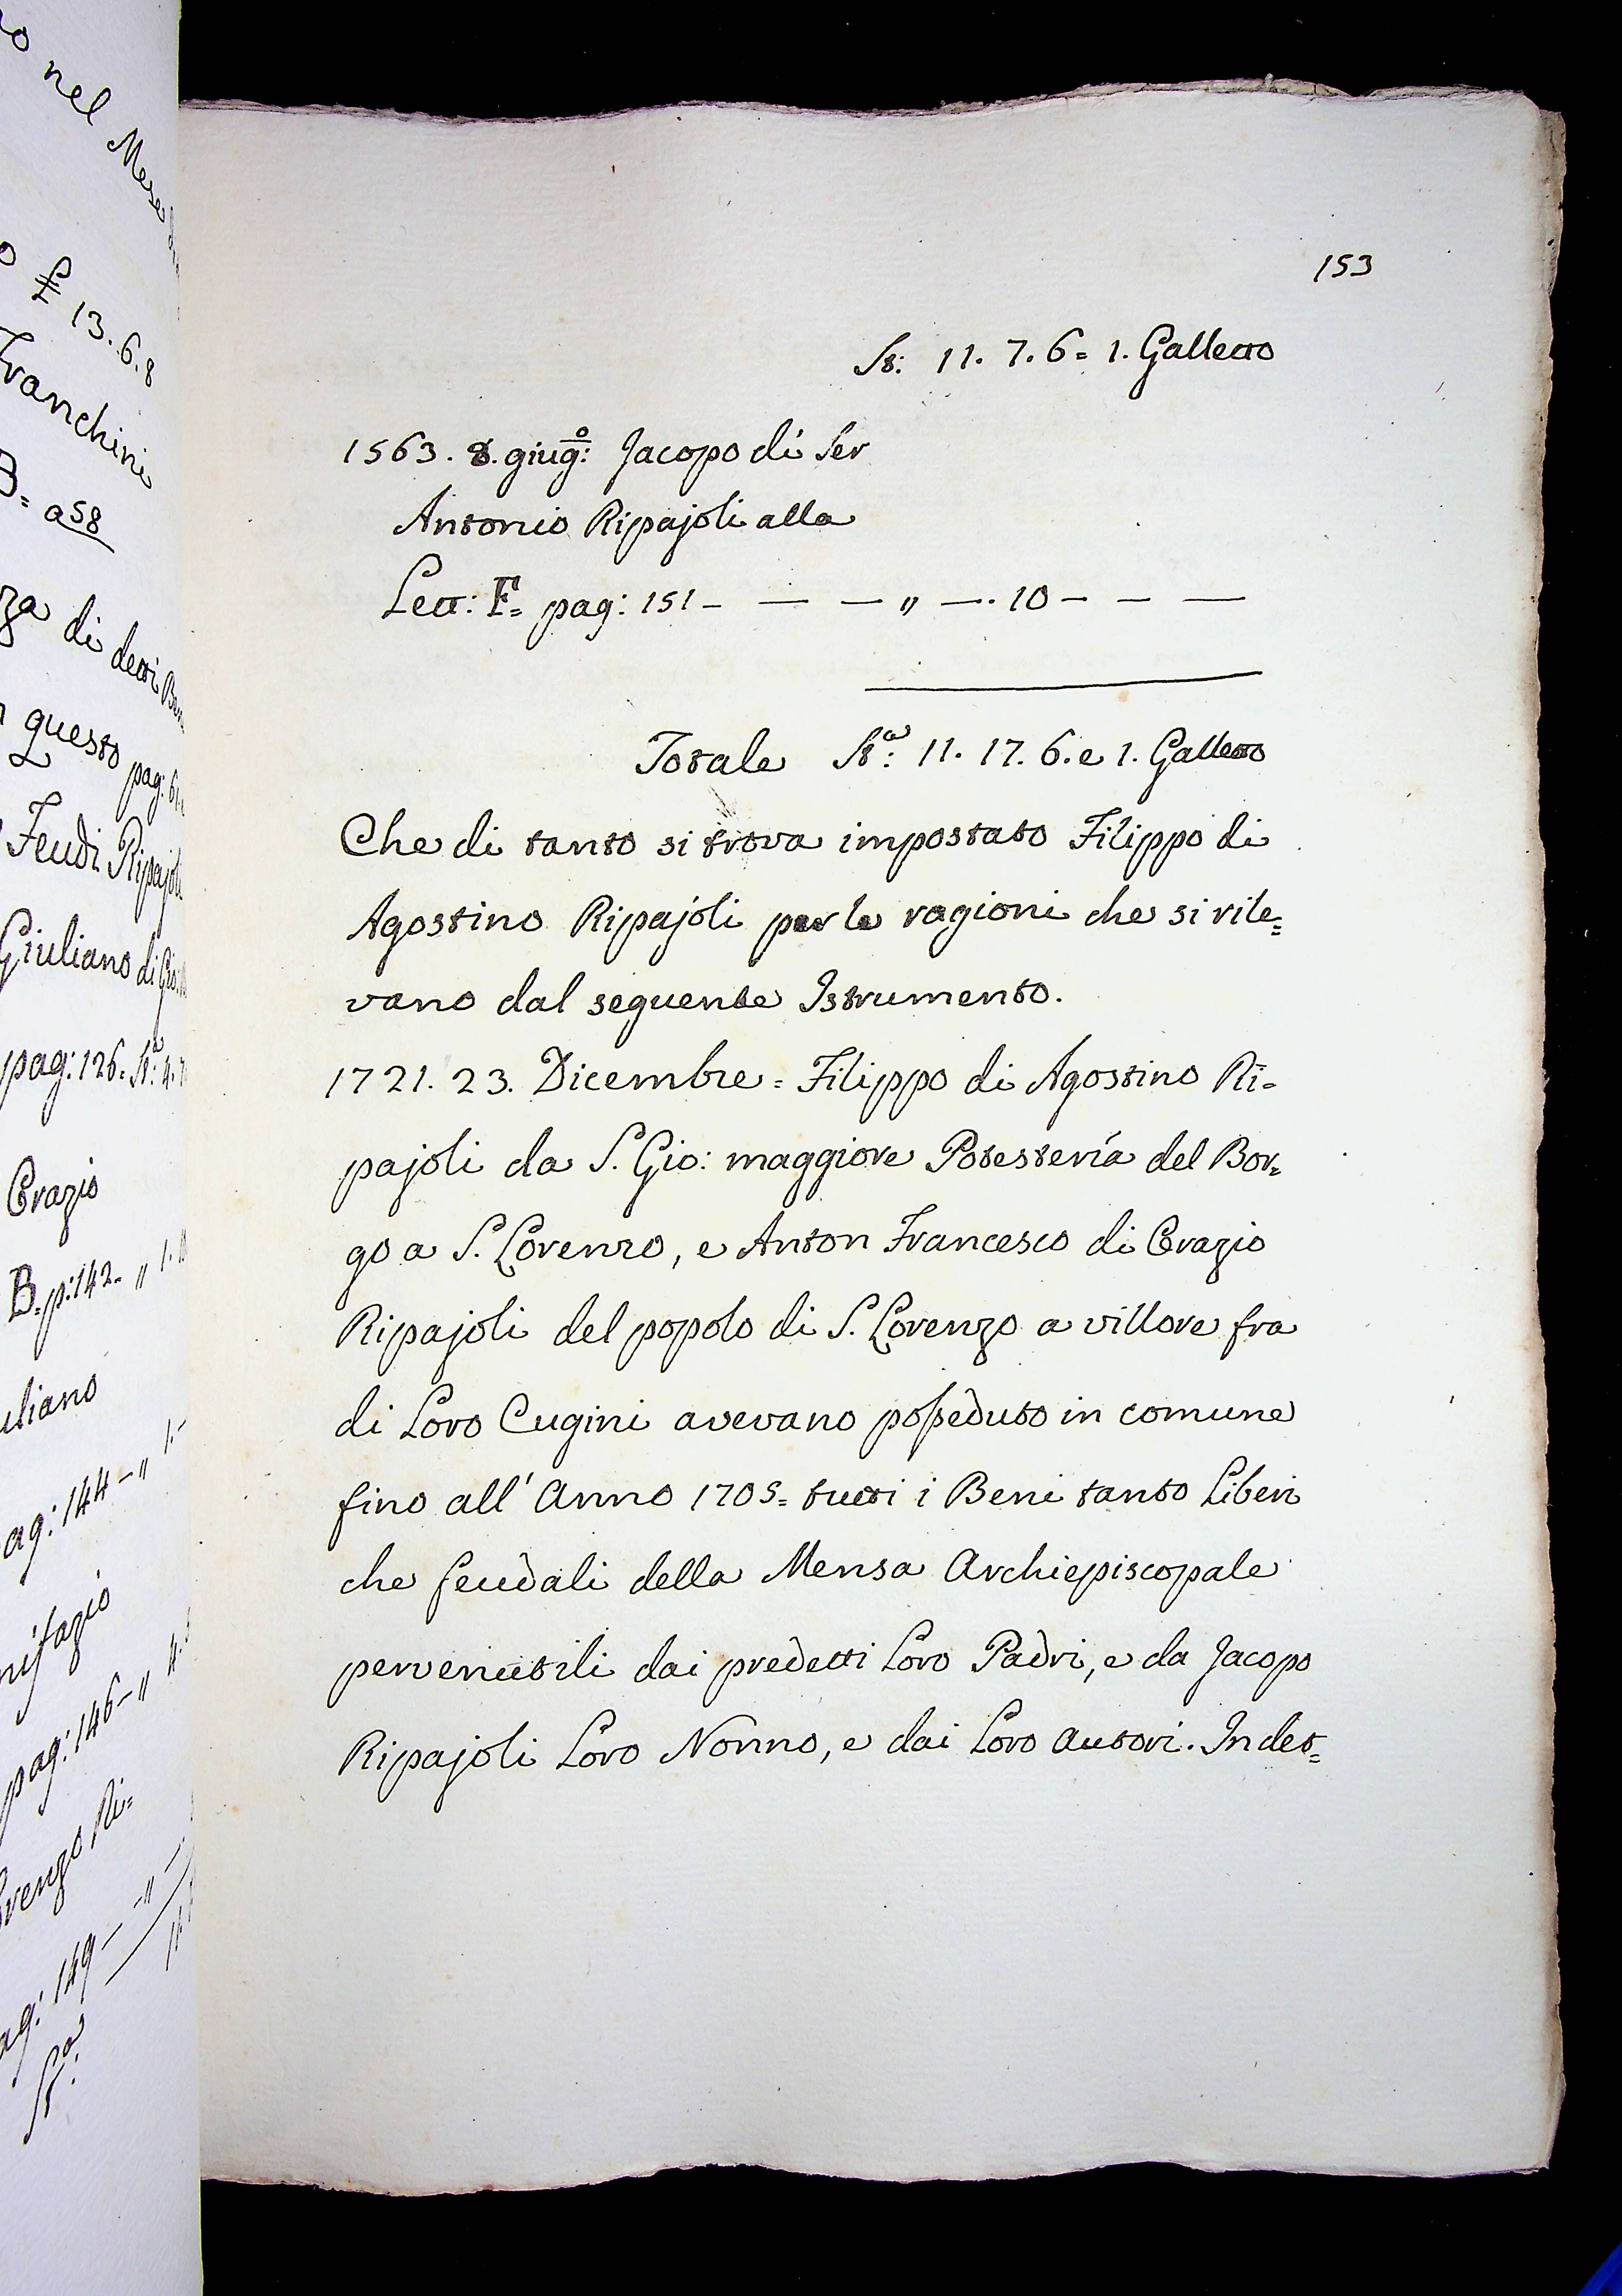 153
St: 11. 7. 6 = 1. Galletto
1563. 8. giug:º Jacopo di Ser
Antonio Ripajoli alla
Lett: F= pag: 151 – — — „ —. 10 – – —
Totale St:ª 11. 17. 6. e 1. Galletto
Che di tanto si trova impostato Filippo di
Agostino Ripajoli per le ragioni che si rile=
vano dal seguente Istrumento.
1721. 23. Dicembre = Filippo di Agostino Ri=
pajoli da S. Gio: maggiore Potestería del Bor=
go a S. Lorenzo, e Anton Francesco di Orazio
Ripajoli del popolo di S. Lorenzo a villore fra
di Loro Cugini avevano posseduto in comune
fino all' Anno 1705= tutti i Beni tanto Liberi
che feudali della Mensa Archiepiscopale
pervenutili dai predetti Loro Padri, e da Jacopo
Ripajoli Loro Nonno, e dai Loro autori. In det=
o nel Mese
o £ 13. 6. 8
Franchini
B= a 58
za di detti Beni
questo pag: 61
Feudi Ripajoli
Giuliano di Gio:
pag: 126. St:ª 4. 7
Orazio
B= p: 142 – „ 1.
uliano
ag: 144 – „ 1. –
nifazio
pag: 146 – „ 4.
orenzo Ri=
ag: 149 – – „ –
St:ª